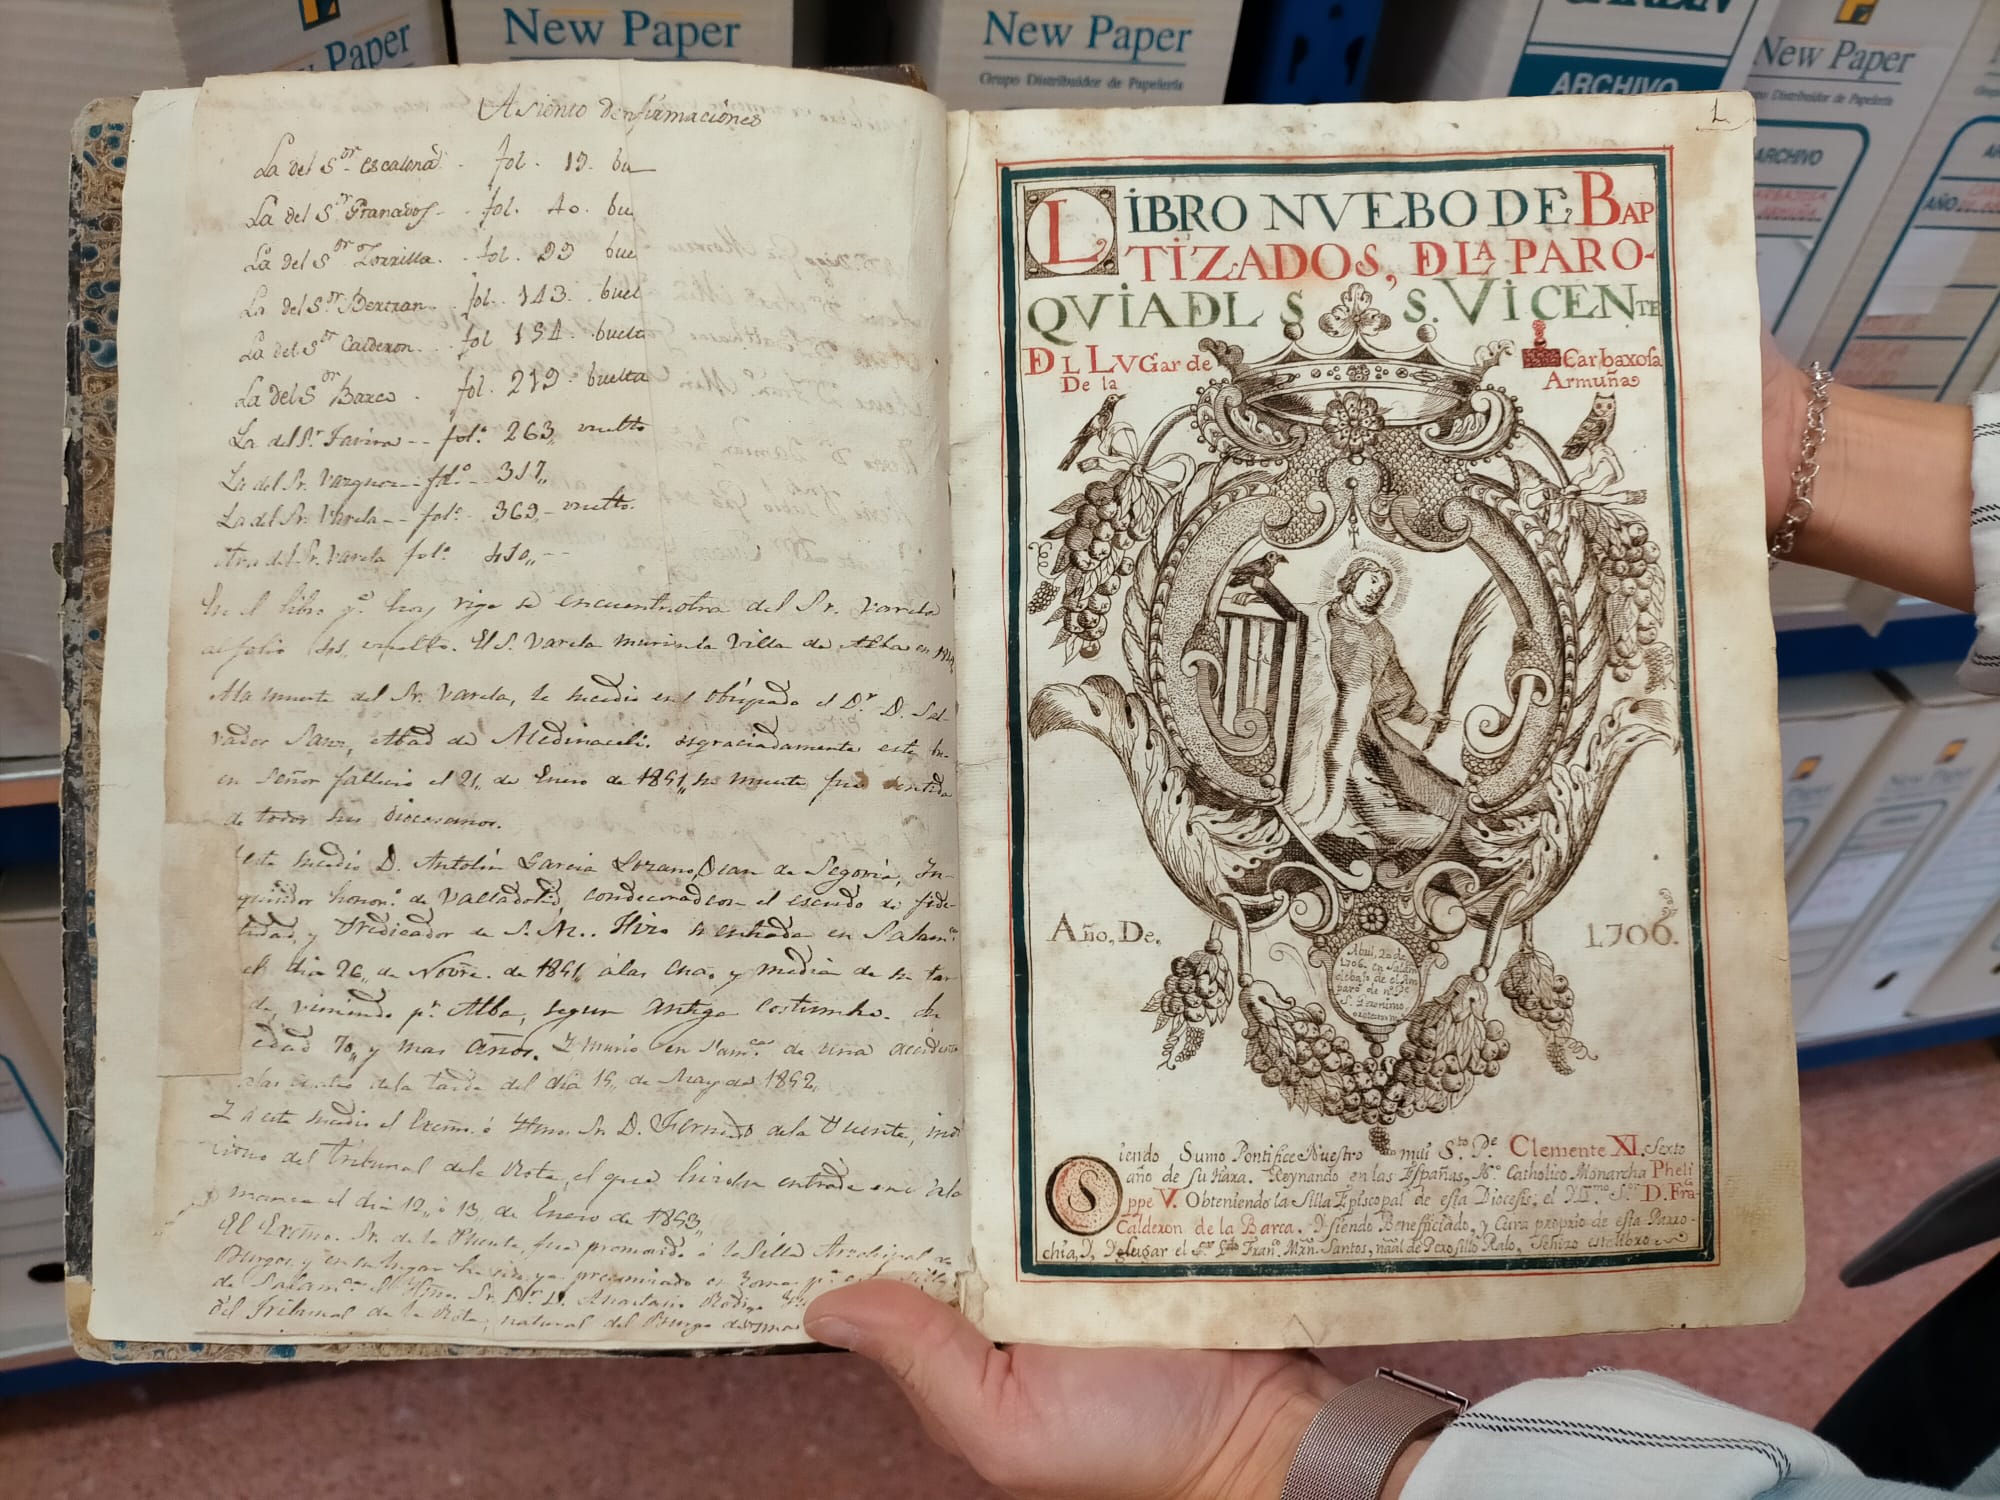 New Paper
New Paper
Grupo Distribuidor de Papelería
New Paper
ARCHIVO
ARCHIVO
AÑO
New Paper
Asiento Confirmaciónes
La del Sor Escalona - fol. 19. bu
La del Sor Granados - fol. 40. bu
La del Sor Zorrilla. - fol. 99 bue
La del Sor Bertran - fol. 143. buel
La del Sor Calderon. fol 194. buelt
La del Sor Barco - fol. 219. buelta
La del Sr Tavira -- fol.o 263, vuelto
La del Sr. Vazquez -- fol.o - 317,,
La del Sr. Varela -- fol.o - 369,- vuelto.
Otra del Sr. Varela fol.o 410,,--
En el libro q.e hoy rige se encuentra otra del Sr. Varela
al folio vuelto. El S. Varela murio en la villa de Alba en
A la muerte del Sr. Varela, le sucedio en el obispado el D.r D. Sal-
vador Sanz, Abad de Medinaceli. Desgraciadamente este bu-
en Señor fallecio el 21,, de Enero de 1851,, su muerte fue sentida
de todos sus diocesanos.
Le sucedio D. Antolin Garcia Lozano, Dean de Segovia, In-
quisidor honor.o de Valladolid, condecorado con el escudo de fide-
lidad, y Predicador de S. M.. Hizo su entrada en Salam.ca
el dia 26,, de Nov.re de 1851, á las y media de su tar-
de, viniendo p.r Alba, segun antigua costumbre. de
edad 70,, y mas años. Y murio en Sam.ca de una
a las cuatro de la tarde del dia 15,, de Mayo de 1852,,
Y á este sucedio el Excmo. é Yllmo. Sr. D. Fernando de la Puente,
del tribunal de la Rota, el que hizo su entrada en Sala-
manca el dia 12,, o 13,, de Enero de 1853,,
El Excmo. Sr. de la Puente, fue promovido á la Silla Arzobispal de
Burgos, y en su lugar ha sido ya preconizado en Roma p.a esta Silla
de Salam.ca el Yllmo. Sr. D.r D. Anastasio Rodrigo
del Tribunal de la Rota, natural del Burgo de Osma
1
LIBRO NVEBO DE BAP
TIZADOS, DE LA PARO-
QVIA DL S S. VICENTE
DL LVGar de Carbaxosa
De la Armuña
Año, De, 1706.
Abril, 20 de
1706. en Salam
debajo de el am
paro de n.o P.e
S. Geronimo
Siendo Sumo Pontifice Nuestro mui S.to P.e Clemente XI, Sexto
año de su Tiara. Reynando en las Españas, N.o Catholico Monarcha Pheli
ppe V. Obteniendo la Silla Episcopal de esta Diocesis, el Yl.mo S.or D. Fra.co
Calderon de la Barca. Y siendo Benefficiado, y Cura proprio de esta Parro-
chia, D, Dlugar el S.or L.do Fran.o Mrn. Santos, n͞al de Perosillo Ralo, Sehizo este libro
New Paper